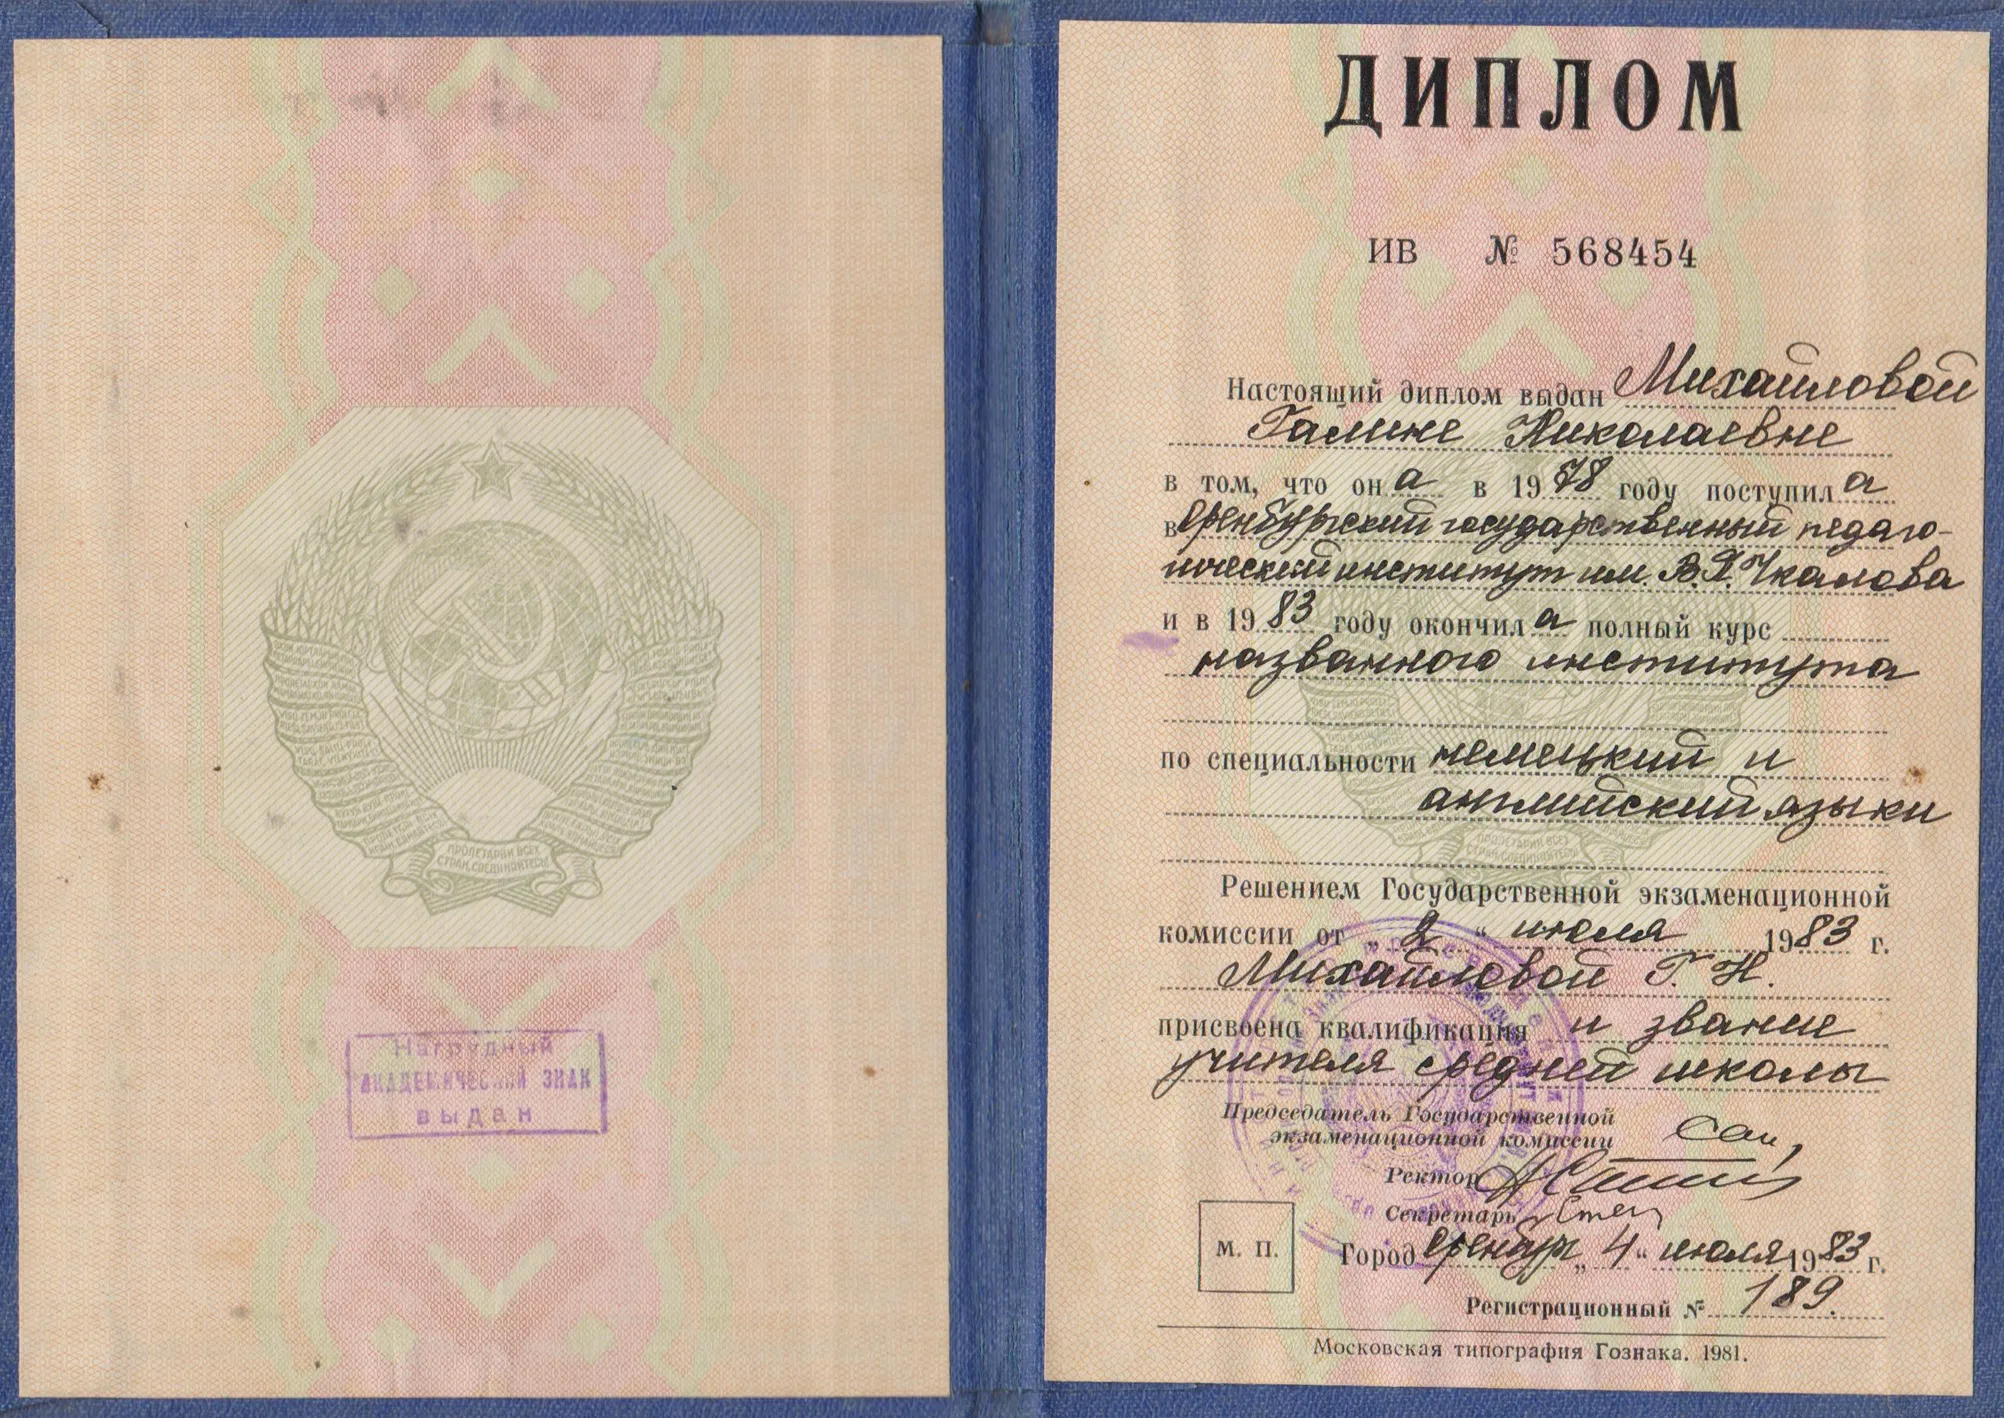 ПРОЛЕТАРИИ ВСЕХ
СТРАН, СОЕДИНЯЙТЕСЬ!
Нагрудный
АКАДЕМИЧЕСКИЙ ЗНАК
выдан
ДИПЛОМ
ИВ № 568454
Настоящий диплом выдан Михайловой
Галине Николаевне
в том, что он а в 1978 году поступил а
в Оренбургский государственный педаго-
гический институт им. В.П. Чкалова
и в 1983 году окончил а полный курс
названного института
по специальности немецкий и
английский языки
Решением Государственной экзаменационной
комиссии от „ 2 “ июля 1983 г.
Михайловой Г. Н.
присвоена квалификация и звание
учителя средней школы
Председатель Государственной
экзаменационной комиссии
Ректор
Секретарь
М. П.
Город Оренбург „ 4 “ июля 1983 г.
Регистрационный № 189.
Московская типография Гознака. 1981.